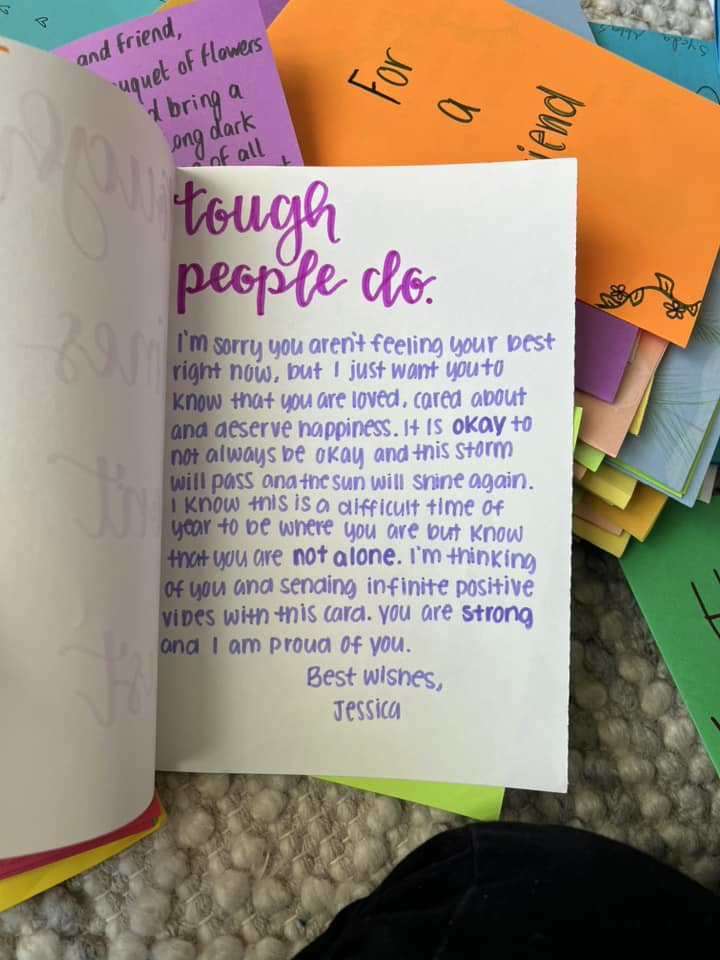 and friend,
uquet of flowers
d bring a
ong dark
of all
For
a
iend
tough
people do.
I'm sorry you aren't feeling your best
right now, but I just want you to
know that you are loved, cared about
and deserve happiness. It is okay to
not always be okay and this storm
will pass and the sun will shine again.
I know this is a difficult time of
year to be where you are but know
that you are not alone. I'm thinking
of you and sending infinite positive
vibes with this card. you are strong
and I am proud of you.
Best wishes,
Jessica